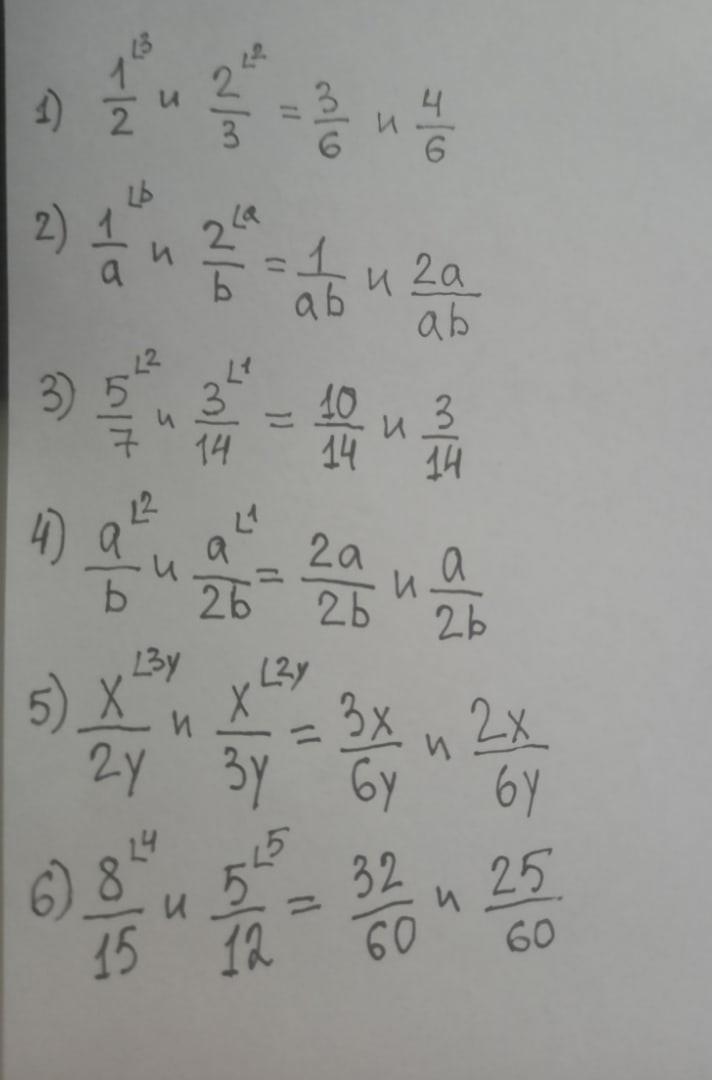 1) 1/2 ⌊3 и 2/3 ⌊2 = 3/6 и 4/6
2) 1/a ⌊b и 2/b ⌊a = 1/ab и 2a/ab
3) 5/7 ⌊2 и 3/14 ⌊1 = 10/14 и 3/14
4) a/b ⌊2 и a/2b ⌊1 = 2a/2b и a/2b
5) x/2y ⌊3y и x/3y ⌊2y = 3x/6y и 2x/6y
6) 8/15 ⌊4 и 5/12 ⌊5 = 32/60 и 25/60